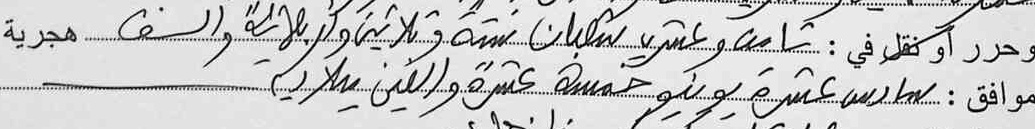 وحرر أو نقل في : ثامن وعشرين شعبان ستة وثلاثين وأربعمائة وألف هجرية
موافق : سادس عشرة يونيو خمسة عشرة وألفين ميلادية